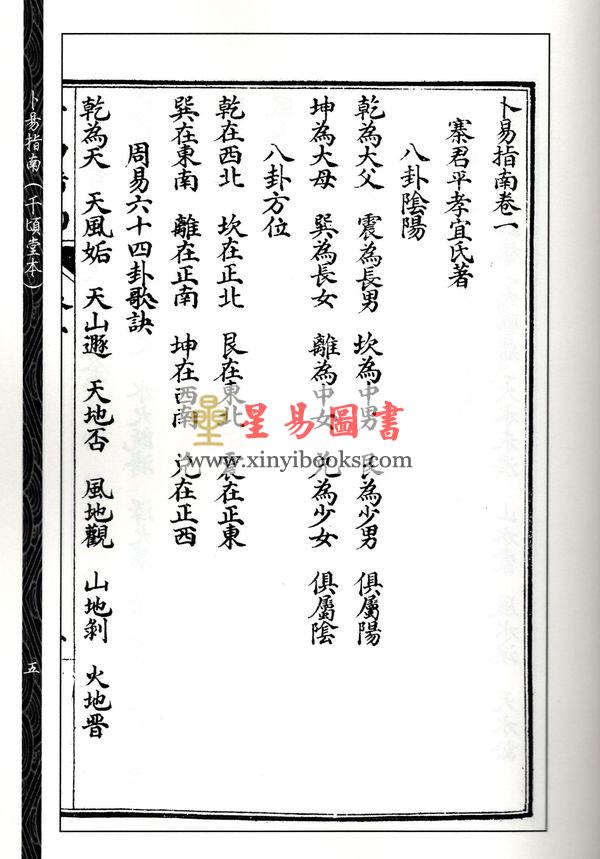 卜易指南卷一
寨君平孝宜氏著
八卦陰陽
乾為大父 震為長男 坎為中男 艮為少男 俱屬陽
坤為大母 巽為長女 離為中女 兌為少女 俱屬陰
八卦方位
乾在西北 坎在正北 艮在東北 震在正東
巽在東南 離在正南 坤在西南 兌在正西
周易六十四卦歌訣
乾為天 天風姤 天山遯 天地否 風地觀 山地剝 火地晋
卜易指南(千頃堂本)
五
星易圖書
www.xinyibooks.com